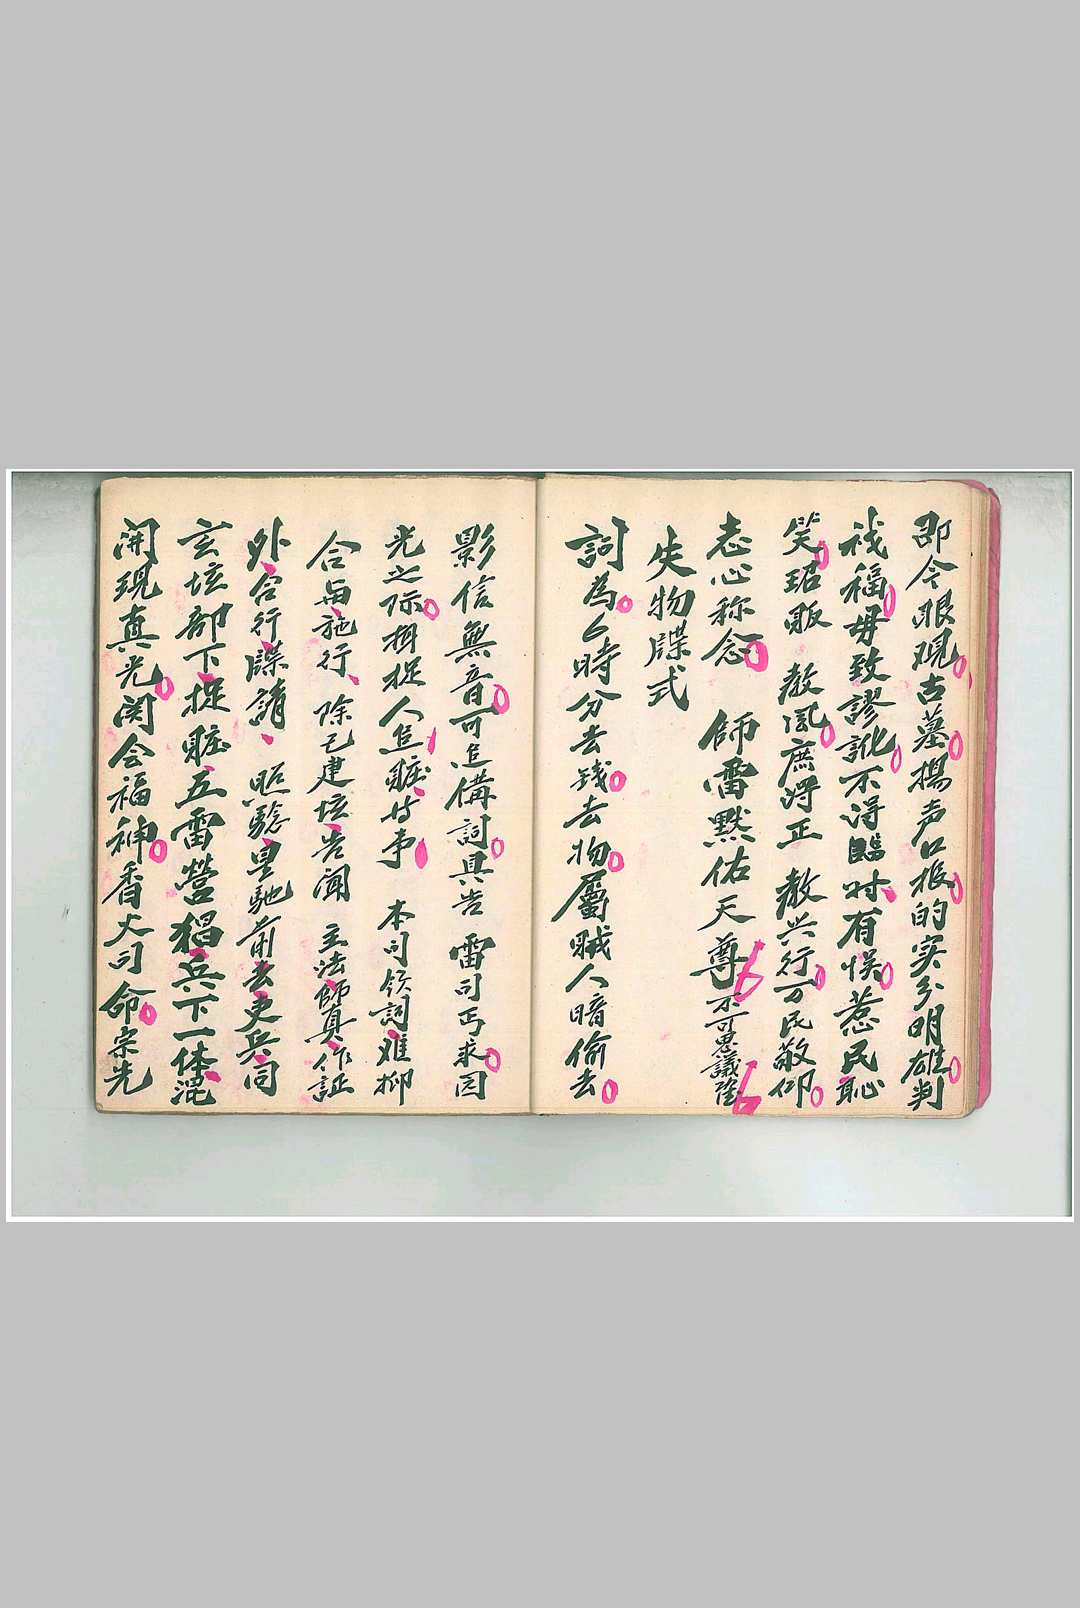 即令眼观古墓揚声口报的实分明雄判
祸福毋致謬訛不得臨时有悞惹民恥
笑玷販 教風庶得正 教兴行万民敬仰
志心称念 師雷默佑天尊不可思議
失物牒式
詞為 時分去錢去物屬賊人暗偷去
影信無音可追備詞具告 雷司丐求园
光之际揖捉人追賍 事 本司领詞难抑
合与施行 除已建坛告聞 立法師真作証
外合行牒請 照騐星馳前去吏兵同
玄坛部下捉賍五雷營猖兵下一体混
開現真光関会福神香火司命宗先